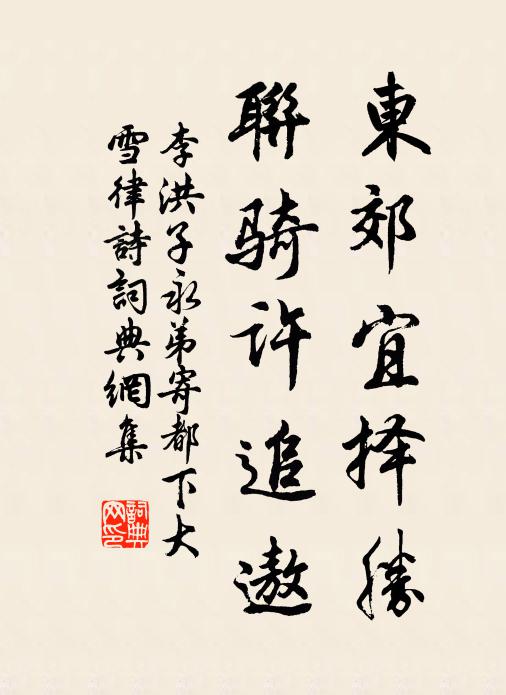 東郊宜择勝
聯騎许追遨
李洪子永弟寄都下大
雪律詩詞典網集
詞典网印